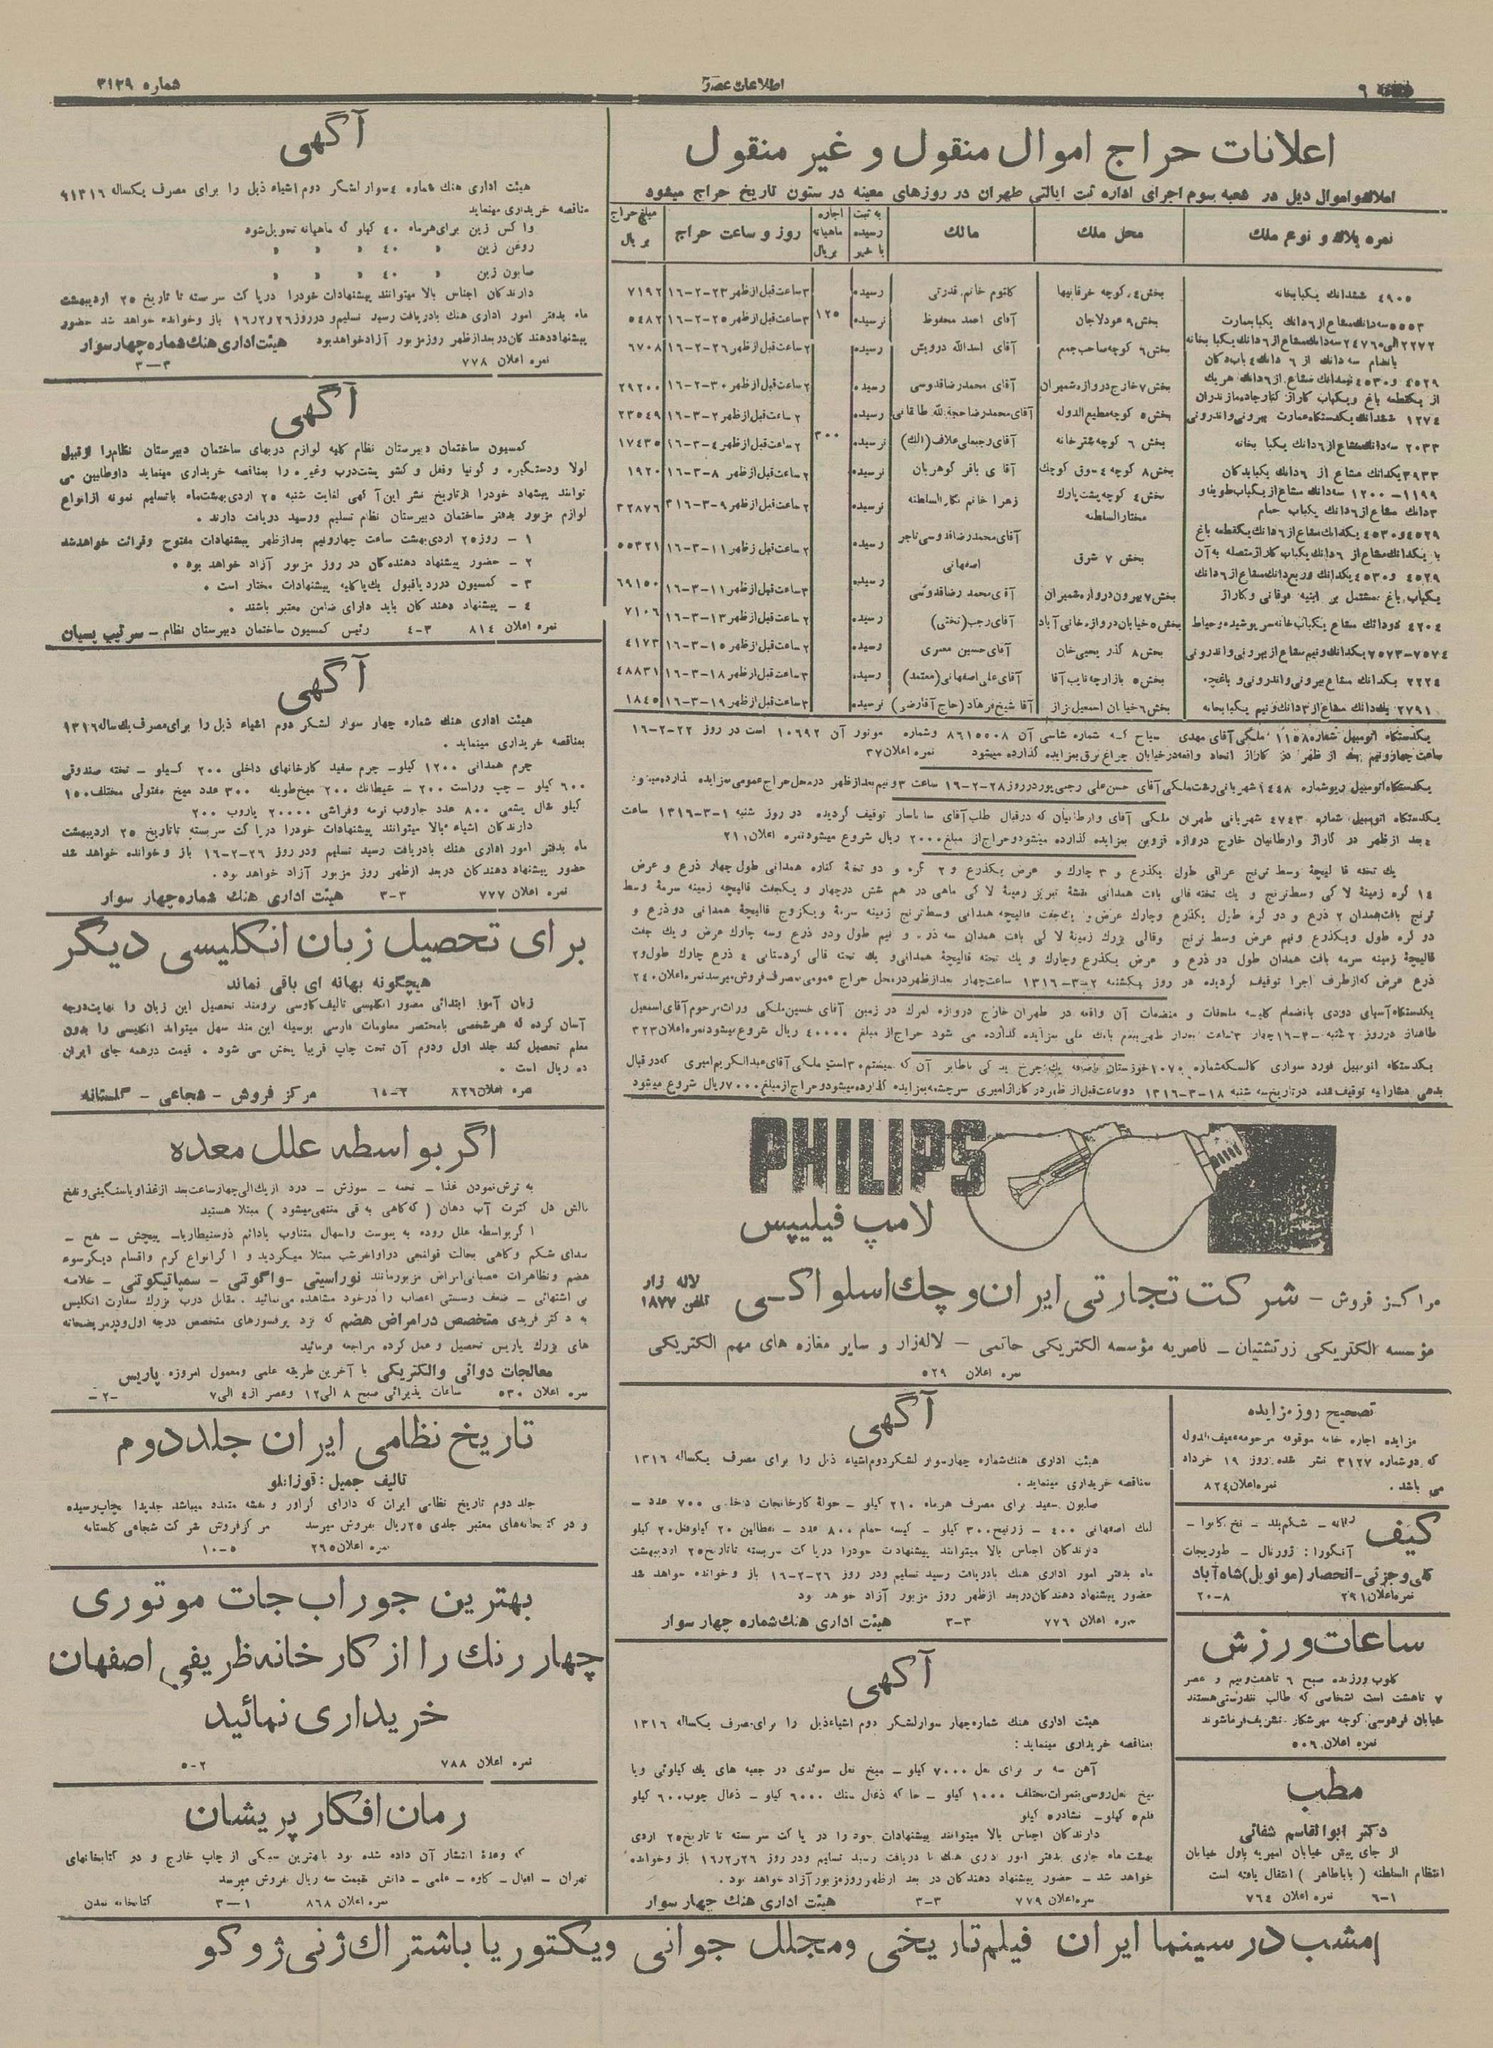 ۶
اطلاعات عصر
شماره ۳۱۲۹
اعلانات حراج اموال منقول و غیر منقول
املاك و اموال ذیل در شعبه سوم اجرای اداره ثبت ایالتی طهران در روزهای معینه در ستون تاریخ حراج میشود
نمره پلاك و نوع ملك
محل ملك
مالك
به ثبت رسیده یا خیر
اجاره ماهیانه بریال
روز و ساعت حراج
مبلغ حراج بریال
۴۹۰۵ ششدانك یکبابخانه بخش ۴ کوچه خرقانیها کلثوم خانم قدرتی رسیده ۳ساعت قبل ازظهر ۲۳-۲-۱۶ ۷۱۹۲
۵۵۵۳ سه‌دانك مشاع از ۶دانك یکبا بعمارت بخش ۹ عودلاجان آقای احمد محفوظ نرسیده ۱۲۵ ۳ساعت قبل ازظهر ۲۵-۲-۱۶ ۵۴۸۲
بخش ۶ کوچه صاحب جمع آقای اسدالله درویش رسیده ۲ساعت قبل ازظهر ۲۶-۲-۱۶ ۶۷۰۸
بانضمام سه دانك از ۶ دانك ۴ باب دکان
بخش ۷ خارج دروازه شمیران آقای محمدرضا قدوسی رسیده ۲ساعت قبل ازظهر ۳۰-۲-۱۶ ۲۹۲۰۰
۱۲۷۴ ششدانك یکدستگاه عمارت بیرونی و اندرونی بخش ۵ کوچه مطیع الدوله آقای محمدرضا حجة‌الله طالقانی رسیده ۲ساعت قبل ازظهر ۲-۳-۱۶ ۲۳۵۴۹
۲۰۳۳ سه‌دانك مشاع از ۶ دانك یکبا بخانه بخش ۶ کوچه شترخانه آقای رجبعلی علاف (الك) نرسیده ۳۰۰ ۲ساعت قبل ازظهر ۴-۳-۱۶ ۱۷۴۳۵
۳۹۳۳ یکدانك مشاع از ۶دانك یکبابدکان بخش ۸ کوچه ۴سوق کوچك آقای باقر گوهریان نرسیده ۲ساعت قبل ازظهر ۸-۳-۱۶ ۱۹۲۰
۱۱۹۹-۱۲۰۰ سه دانك مشاع از یکباب طویله و بخش ۴ کوچه پشت پارك زهرا خانم نگارالسلطنه نرسیده ۹-۳-۱۶ ۳۲۸۷۶
۳دانك مشاع از ۶دانك یکباب حمام مختارالسلطنه
بخش ۷ شرق آقای محمدرضا قدوسی تاجر اصفهانی رسیده ۱۱-۳-۱۶ ۵۵۳۲۱
یکباب باغ مشتمل بر ابنیه فوقانی و کاراژ بخش ۷ بیرون دروازه شمیران آقای محمد رضا قدوسی رسیده ۳ساعت قبل ازظهر ۱۱-۳-۱۶ ۶۹۱۵۰
۴۲۰۴ دودانك مشاع یکباب خانه سرپوشیده و حیاط بخش ۵ خیابان دروازه خانی آباد آقای رجب (نختی) رسیده ۲ساعت قبل ازظهر ۱۳-۳-۱۶ ۷۱۰۶
۷۵۷۴-۷۵۷۳ یکدانك ونیم مشاع از بیرونی و اندرونی بخش ۸ گذر یحیی خان آقای حسین معیری رسیده ۲ساعت قبل ازظهر ۱۵-۳-۱۶ ۴۱۷۳
۲۲۲۴ یکدانك مشاع بیرونی و اندرونی و باغچه بخش ۵ بازارچه نایب آقا آقای علی اصفهانی (معتمد) رسیده ۳ساعت قبل ازظهر ۱۸-۳-۱۶ ۴۸۸۳۱
بخش ۶ خیابان اسمعیل بزاز آقا شیخ فرهاد (حاج آقارضی) نرسیده ۳ساعت قبل ازظهر ۱۹-۳-۱۶ ۱۸۴۵
یکدستگاه اتومبیل شماره ۱۱۵۸ ملکی آقای مهدی سیاح که شماره شاسی آن ۸۶۱۵۵۰۸ وشماره موتور آن ۱۰۶۹۲ است در روز ۲۲-۲-۱۶
ساعت چهارونیم بعد از ظهر در کاراژ اتحاد واقعه درخیابان چراغ برق بمزایده گذارده میشود نمره اعلان ۳۷
یکدستگاه اتومبیل ریو شماره ۱۴۴۸ شهربانی رشت ملکی آقای حسن علی رجبی پور در روز ۲۸-۲-۱۶ ساعت ۳ ونیم بعدازظهر درمحل حراج عمومی بمزایده گذارده میشود
یکدستگاه اتومبیل شماره ۴۷۴۳ شهربانی طهران ملکی آقای وارطانیان که درقبال طلب آقای توقیف گردیده در روز شنبه ۱-۳-۱۳۱۶ ساعت
۴ بعد ازظهر در کاراژ وارطانیان خارج دروازه قزوین بمزایده گذارده میشود و حراج از مبلغ ۲۰۰۰ ریال شروع میشود نمره اعلان ۲۱
یك تخته قالیچه وسط ترنج عراقی طول یکذرع و ۳ چارك و عرض یکذرع و ۲ گره و دو تخته کناره همدانی طول چهار ذرع و عرض
۱۴ گره زمینه لاکی وسط ترنج و یك تخته قالی بافت همدانی نقشه تبریز زمینه لاکی ماهی درهم شش درچهار و یکجفت قالیچه زمینه سرمه وسط
ترنج بافت همدان ۲ ذرع و دو گره طول یکذرع وچارك عرض و یکجفت قالیچه همدانی وسط ترنج زمینه سرمه ویکزوج قالیچه همدانی دو ذرع و
دو گره طول ویکذرع ونیم عرض وسط ترنج وقالی بزرك زمینه لاکی بافت همدان سه ذرع و نیم طول ودو ذرع وسه چارك عرض و یك جفت
قالیچه زمینه سرمه بافت همدان طول دو ذرع و عرض یکذرع وچارك و یك تخته قالیچه همدانی و یك تخته قالی کردستانی ۴ ذرع چارك طول و ۲
ذرع عرض که ازطرف اجرا توقیف گردیده در روز یکشنبه ۲-۳-۱۳۱۶ ساعت چهار بعدازظهر درمحل حراج عمومی بمصرف فروش میرسد نمره اعلان ۲۴۰
یکدستگاه آسیای دودی بانضمام کلیه ملحقات و منضمات آن واقعه در طهران خارج دروازه گمرك در زمین آقای حسین ملکی وراث مرحوم آقای اسمعیل
بمزایده گذارده می شود حراج از مبلغ ۴۰۰۰۰ ریال شروع میشود نمره اعلان ۳۲۳
یکدستگاه اتومبیل فورد سواری کالسکه شماره ۱۰۷۰ خوزستان ملکی آقای عبدالکریم امیری که در قبال
بدهی مشارالیه توقیف شده در تاریخ سه شنبه ۱۸-۳-۱۳۱۶ دو ساعت قبل از ظهر در کاراژ امیری سرچشمه بمزایده گذارده میشود و حراج از مبلغ ۷۰۰۰ ریال شروع میشود
PHILIPS
لامپ فیلیپس
مراکز فروش - شرکت تجارتی ایران و چك اسلواکی
لاله زار
تلفن ۱۸۷۷
مؤسسه الکتریکی زرتشتیان - ناصریه مؤسسه الکتریکی حاتمی - لاله‌زار و سایر مغازه های مهم الکتریکی
نمره اعلان ۵۲۹
تصحیح روز مزایده
مزایده اجاره خانه موقوفه مرحومه عفیف‌الدوله
که درشماره ۳۱۲۷ نشر شده روز ۱۹ خرداد
می باشد . نمره اعلان ۸۲۴
کیف
زنانه - شکم‌بند - نخ کانوا -
آنگورا : ژورنال - طوریجات
کلی و جزئی - انحصار (مونوپل) شاه آباد
نمره اعلان ۲۹۱ ۸-۲۰
ساعات ورزش
کلوب ورزنده صبح ۶ تا هفت‌ونیم و عصر
۷ تاهشت است اشخاصی که طالب تندرستی هستند
خیابان فردوسی کوچه مهرشکار تشریف فرماشوند
نمره اعلان ۵۰۶
مطب
دکتر ابوالقاسم شفائی
از جای پیش خیابان امیریه باول خیابان
انتظام السلطنه ( باباطاهر ) انتقال یافته است
۱-۶ نمره اعلان ۷۶۴
آگهی
هیئت اداری هنك شماره چهار سوار لشگر دوم اشیاء ذیل را برای مصرف یکساله ۱۳۱۶
بمناقصه خریداری مینماید .
صابون سفید برای مصرف هرماه ۲۱۰ کیلو - حوله کارخانجات داخلی ۷۰۰ عدد -
لنك اصفهانی ۴۰۰ - زرنیخ ۳۰۰ کیلو - کیسه حمام ۸۰۰ عدد - نفطالین ۲۰ کیلو فلفل ۲۰ کیلو
دارندگان اجناس بالا میتوانند پیشنهادات خودرا درپاکت سربسته تاتاریخ ۲۵ اردیبهشت
ماه بدفتر امور اداری هنك بادریافت رسید تسلیم ودر روز ۲۶-۲-۱۶ باز وخوانده خواهد شد
حضور پیشنهاد دهندگان دربعد ازظهر روز مزبور آزاد خواهد بود
نمره اعلان ۷۷۶ ۳-۳ هیئت اداری هنك شماره چهار سوار
آگهی
هیئت اداری هنك شماره چهار سوار لشگر دوم اشیاء ذیل را برای مصرف یکساله ۱۳۱۶
بمناقصه خریداری مینماید :
آهن سه پر برای نعل ۷۰۰۰ کیلو - میخ نعل سوئدی در جعبه های یك کیلوئی ویا
میخ نعل روسی بنمرات مختلف ۱۰۰۰ کیلو - خاکه ذغال سنك ۶۰۰۰ کیلو - ذغال چوب ۶۰۰ کیلو
قلع ۵ کیلو - نشادر ۵ کیلو
دارندگان اجناس بالا میتوانند پیشنهادات خود را در پاکت سربسته تا تاریخ ۲۵ اردی
بهشت ماه جاری بدفتر امور اداری هنك با دریافت رسید تسلیم ودر روز ۱۶/۲/۲۶ باز وخوانده
خواهد شد - حضور پیشنهاد دهندگان در بعد ازظهر روز مزبور آزاد خواهد بود .
نمره اعلان ۷۷۹ ۳-۳ هیئت اداری هنك چهار سوار
آگهی
هیئت اداری هنك شماره ۴ سوار لشگر دوم اشیاء ذیل را برای مصرف یکساله ۱۳۱۶
بمناقصه خریداری مینماید
واکس زین برای هرماه ۴۰ کیلو که ماهیانه تحویل شود
روغن زین » ۴۰ » » »
صابون زین » ۴۰ » » »
دارندگان اجناس بالا میتوانند پیشنهادات خودرا درپاکت سربسته تا تاریخ ۲۵ اردیبهشت
ماه بدفتر امور اداری هنك بادریافت رسید تسلیم و درروز ۱۶/۲/۲۶ باز وخوانده خواهد شد حضور
پیشنهاد دهندگان دربعد ازظهر روز مزبور آزاد خواهد بود هیئت اداری هنك شماره چهار سوار
نمره اعلان ۷۷۸ ۳-۳
آگهی
کمسیون ساختمان دبیرستان نظام کلیه لوازم دربهای ساختمان دبیرستان نظام را ازقبیل
لولا ودستگیره و گونیا وقفل و کشو پشت درب وغیره را بمناقصه خریداری مینماید داوطلبین می
توانند پیشنهاد خودرا ازتاریخ نشر این آگهی لغایت شنبه ۲۵ اردی بهشت ماه باتسلیم نمونه ازانواع
لوازم مزبور بدفتر ساختمان دبیرستان نظام تسلیم ورسید دریافت دارند .
۱ - روز ۲۵ اردی بهشت ساعت چهارونیم بعدازظهر پیشنهادات مفتوح وقرائت خواهد شد
۲ - حضور پیشنهاد دهنده گان در روز مزبور آزاد خواهد بود .
۳ - کمسیون دررد یاقبول یك یا کلیه پیشنهادات مختار است .
۴ - پیشنهاد دهندگان باید دارای ضامن معتبر باشند .
نمره اعلان ۸۱۴ ۳-۴ رئیس کمسیون ساختمان دبیرستان نظام - سرتیپ پسیان
آگهی
هیئت اداری هنك شماره چهار سوار لشگر دوم اشیاء ذیل را برای مصرف یك ساله ۱۳۱۶
بمناقصه خریداری مینماید .
چرم همدانی ۱۲۰۰ کیلو - چرم سفید کارخانهای داخلی ۲۰۰ کیلو - تخته صندوقی
۶۰۰ کیلو - چپ وراست ۲۰۰ - غیطانك ۲۰۰ میخ طویله ۳۰۰ عدد میخ مفتولی مختلف ۱۵۰
کیلو شال پشمی ۸۰۰ عدد جاروب نرمه وفراشی ۲۰۰۰۰ پاروب ۲۰۰
دارندگان اشیاء بالا میتوانند پیشنهادات خودرا درپاکت سربسته تاتاریخ ۲۵ اردیبهشت
ماه بدفتر امور اداری هنك بادریافت رسید تسلیم ودر روز ۲۶-۲-۱۶ باز وخوانده خواهد شد
حضور پیشنهاد دهندگان دربعد ازظهر روز مزبور آزاد خواهد بود .
نمره اعلان ۷۷۷ ۳-۳ هیئت اداری هنك شماره چهار سوار
برای تحصیل زبان انکلیسی دیگر
هیچگونه بهانه ای باقی نماند
زبان آموز ابتدائی مصور انکلیسی تالیف کاوسی برومند تحصیل این زبان را نهایت درجه
آسان کرده که هرشخصی بامختصر معلومات فارسی بوسیله این متد سهل میتواند انکلیسی را بدون
معلم تحصیل کند جلد اول ودوم آن تحت چاپ قریبا پخش می شود . قیمت درهمه جای ایران
ده ریال است .
نمره اعلان ۸۲۶ ۲-۱۵ مرکز فروش - شجاعی - گلستانه
اگر بواسطه علل معده
به ترش نمودن غذا - تخمه - سوزش - درد از یك الی چهار ساعت بعد از غذا ویا سنگینی و نفخ
مالش دل کثرت آب دهان ( که گاهی به قی منتهی میشود ) مبتلا هستید
اگر بواسطه علل روده به یبوست واسهال متناوب یادائم ذوسنطاریا - پیچش - فتح -
صدای شکم وگاهی بحالت قولنجی دراواخرشب مبتلا میگردید و اگرانواع کرم واقسام دیگرسوء
هضم وتظاهرات عصبانی امراض مزبورمانند نوراستنی - واگوتنی - سمپاتیکوتنی - خلاصه
بی اشتهائی - ضعف وسستی اعصاب را درخود مشاهده می نمائید . مقابل درب بزرك سفارت انکلیس
به دکتر فریدی متخصص درامراض هضم که نزد پرفسورهای متخصص درجه اول ودرمریضخانه
های بزرك پاریس تحصیل و عمل کرده مراجعه فرمائید
معالجات دوائی والکتریکی با آخرین طریقه علمی ومعمول امروزه پاریس
نمره اعلان ۵۳۰ ساعات پذیرائی صبح ۸ الی ۱۲ وعصر از ۴ الی ۷ -۲-
تاریخ نظامی ایران جلد دوم
تالیف جمیل : قوزانلو
جلد دوم تاریخ نظامی ایران که دارای گراور و نقشه متعدد میباشد جدیدا بچاپ رسیده
و در کتابخانه‌های معتبر جلدی ۲۵ ریال بفروش میرسد مرکزفروش شرکت شجاعی گلستانه
نمره اعلان ۲۶۵ ۵-۱۰
بهترین جوراب جات موتوری
چهار رنك را از کارخانه ظریفی اصفهان
خریداری نمائید
نمره اعلان ۷۸۸ ۲-۵
رمان افکار پریشان
که وعدهٔ انتشار آن داده شده بود بابهترین سبکی از چاپ خارج و در کتابخانهای
تهران - اقبال - کاوه - علمی - دانش بقیمت سه ریال بفروش میرسد
نمره اعلان ۸۶۸ ۱-۳ کتابخانه تمدن
امشب در سینما ایران فیلم تاریخی و مجلل جوانی ویکتوریا باشتراك ژنی ژوگو